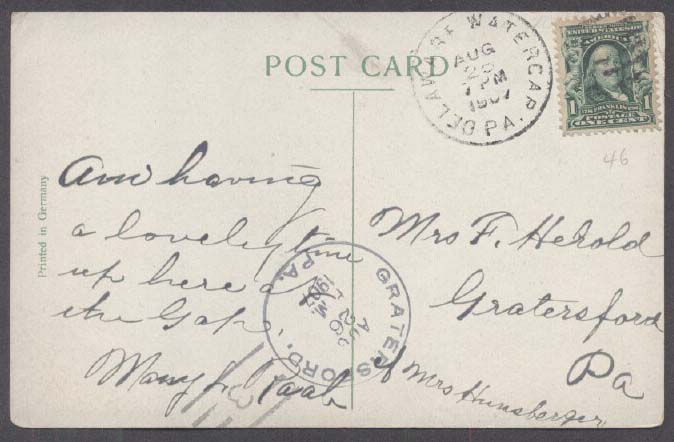 POST CARD
DELAWARE WATER GAP, PA.
AUG
7 PM
1907
SERIES 1902
UNITED STATES OF AMERICA
1 FRANKLIN 1
POSTAGE
ONE CENT
46
Printed in Germany
Am having
a lovely time
up here at
the Gap.
Mary L. Raab
GRATERSFORD, PA.
AUG
26
1907
Mrs F. Herold
Gratersford
Pa
℅ Mrs Hunsberger